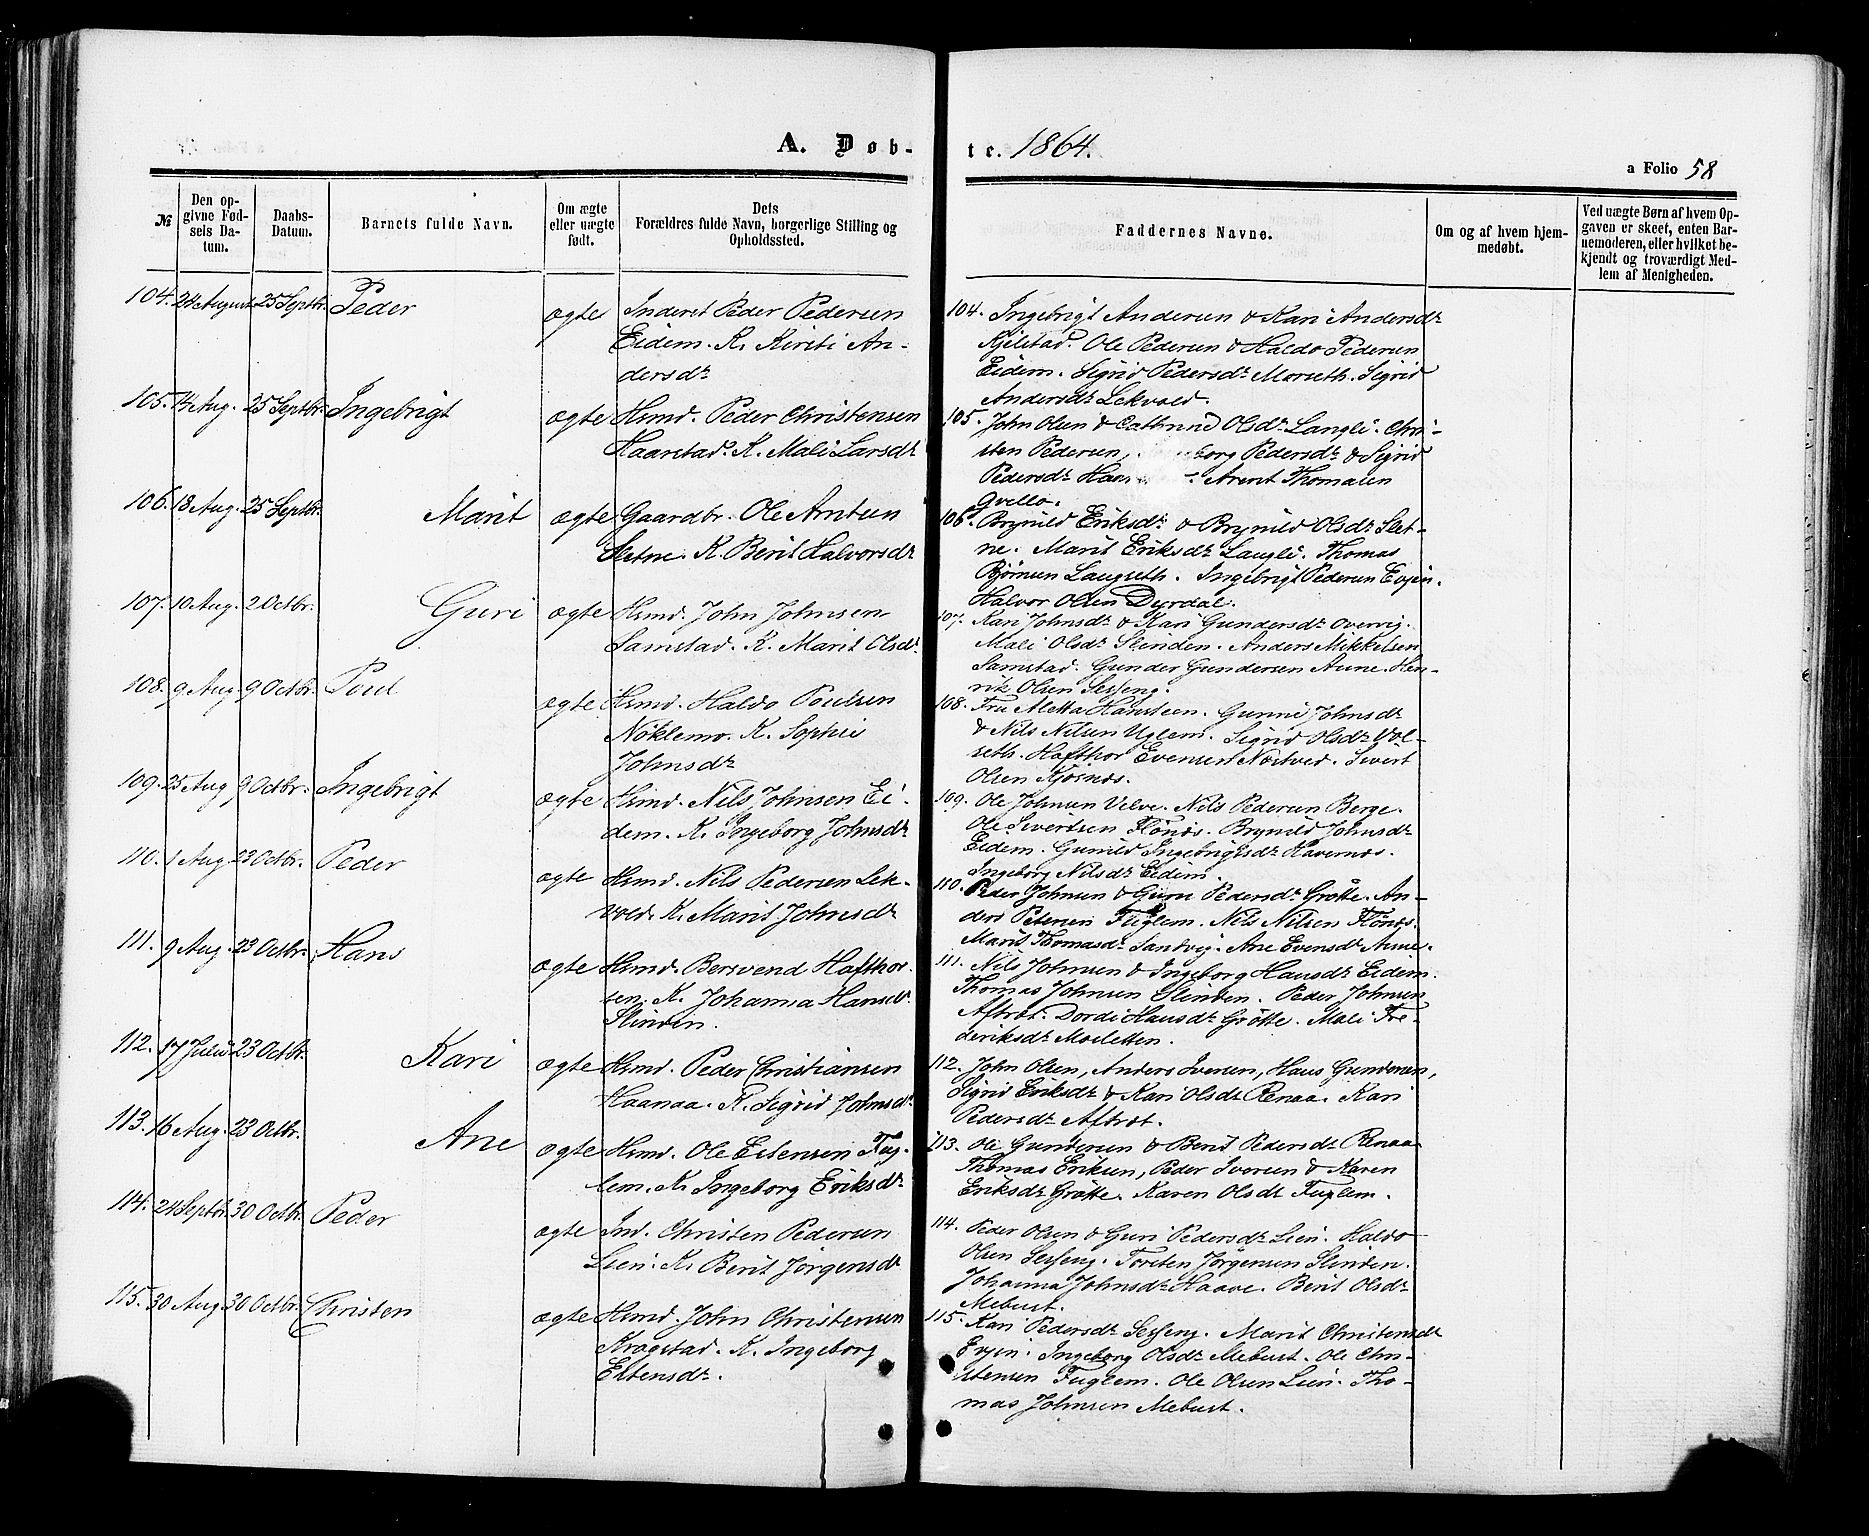 A. Døb-
te. 1864.
a Folio 58
№
Den op-
givne Fød-
sels Da-
tum.
Daabs-
Datum.
Barnets fulde Navn.
Om ægte
eller uægte
født.
Dets
Forældres fulde Navn, borgerlige Stilling og
Opholdssted.
Faddernes Navne.
Om og af hvem hjem-
medøbt.
Ved uægte Børn af hvem Op-
gaven er skeet, enten Bar-
nemoderen, eller hvilket be-
kjendt og troværdigt Med-
lem af Menigheden.
104. 24 August 25 Septbr. Peder ægte Inderst Peder Pedersen
Eidem. K. Kirsti An-
dersdr
105. 14 Aug. 25 Septbr. Ingebrigt ægte Hsmd. Peder Christensen
Haarstad. K. Mali Larsdr
106. 18 Aug. 25 Septbr. Marit ægte Gaardbr. Ole Arntsen
Sletne. K. Berit Halvorsdr
107. 10 Aug. 2 Octbr. Guri ægte Hsmd. John Johnsen
Samstad. K. Marit Olsdr
108. 9 Aug. 9 Octbr. Poul ægte Hsmd. Haldo Poulsen
Nöklemo. K. Sophie
Johnsdr
109. 25 Aug 9 Octbr. Ingebrigt ægte Hsmd. Nils Johnsen Ei-
dem. K. Ingeborg Johnsdr
110. 1 Aug 23 Octbr. Peder ægte Hsmd. Nils Pedersen Lek-
vold. K. Marit Johnsdr
111. 9 Aug. 23 Octbr. Hans ægte Hsmd. Bersvend Hafthor-
sen. K. Johanna Hansdr
Slinden.
112. 17 Juli 23 Octbr Kari ægte Hsmd. Peder Christiansen
Haanaa. K. Sigrid Johnsdr
113. 16 Aug. 23 Octbr. Ane ægte Hsmd. Ole Estensen Fug-
lem. K. Ingeborg Eriksdr
114. 24 Septbr. 30 Octbr. Peder ægte Ind. Christen Pedersen
Lien. K. Berit Jörgensdr
115. 30 Aug. 30 Octbr. Christen ægte Hsmd. John Christensen
Kragstad. K. Ingeborg
Estensdr.
104. Ingebrigt Andersen & Kari Andersdr
Kjelstad. Ole Pedersen & Haldo Pedersen
Eidem. Sigrid Pedersdr Marseth. Sigrid
Andersdr Lekvold.
105. John Olsen & Cathrine Olsdr Langli. Chri-
sten Pedersen, borg Pedersdr & Sigrid
Pedersdr Arent Thomasen
Qvello.
106. Brynild Eriksdr & Brynild Olsdr Slet-
ne. Marit Eriksdr Langli. Thomas
Björnsen Langseth. Ingebrigt Pedersen Evjen.
Halvor Olsen Dyrdal.
107. Kari Johnsdr & Kari Gundersdr Overvig.
Mali Olsdr Slinden. Anders Mikkelsen
Samstad. Gunder Gundersen Aune. Hen-
rik Olsen Sesseng.
108. Fru Aletta Hansteen. Gunni Johnsdr
& Nils Nilsen Uglem. Sigrid Olsdr Vol-
seth. Hafthor Evensen Næstved. Sivert
Olsen Kjösnæs.
109. Ole Johnsen Velve. Nils Pedersen Berge.
Ole Sivertsen Flönæs. Brynild Johnsdr
Eidem. Gunild Ingebrigtsdr Havernæs.
Ingeborg Nilsdr Eidem.
110. Peder Johnsen & Guru Pedersdr Grötte. An-
ders Petersen Fuglem. Nils Nilsen Flönæs.
Marit Thomasdr Sandvig. Ane Evensdr Aune.
111. Nils Johnsen & Ingeborg Hansdr Eidem.
Thomas Johnsen Slinden. Peder Johnsen
Aftret. Dordi Hansdr Grötte. Mali Fre-
deriksdr Mosletten.
112. John Olsen, Anders Iversen, Hans Gundersen,
Sigrid Eriksdr & Kari Olsdr Renaa. Kari
Pedersdr Aftret.
113. Ole Gundersen & Berit Pedersdr Renaa
Thomas Eriksen, Peder Iversen & Karen
Eriksdr Grötte. Karen Olsdr Fuglem.
114. Peder Olsen & Guri Pedersdr Lien. Haldo
Olsen Sesseng. Torsten Jörgensen Slinden.
Johanna Johnsdr Haave. Berit Olsdr
Mebust.
115. Kari Pedersdr Sesseng. Marit Christensdr
Evjen. Ingeborg Olsdr Mebust. Ole Chri-
stensen Fuglem. Ole Olsen Lien. Tho-
mas Johnsen Mebust.